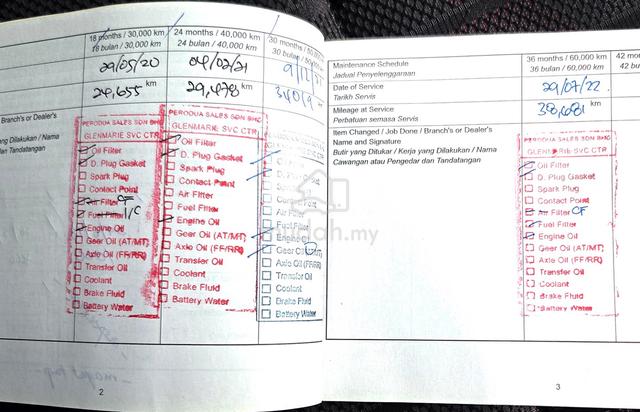 18 months / 30,000 km
18 bulan / 30,000 km
24 months / 40,000 km
24 bulan / 40,000 km
30 months
30 bulan
29/05/20
04/02/21
24,655 km
29,478 km
Branch's or Dealer's
PERODUA SALES SDN BHD
GLENMARIE SVC CTR
Oil Filter
D. Plug Gasket
Spark Plug
Contact Point
Air Filter CF
Fuel Filter
Engine Oil
Gear Oil (AT/MT)
Axle Oil (FF/RR)
Transfer Oil
Coolant
Brake Fluid
Battery Water
PERODUA SALES SDN BHD
GLENMARIE SVC CTR
Oil Filter
D. Plug Gasket
Spark Plug
Contact Point
Air Filter
Fuel Filter
Engine Oil
Gear Oil (AT/MT)
Axle Oil (FF/RR)
Transfer Oil
Coolant
Brake Fluid
Battery Water
Air Filter
Fuel Filter
Engine Oil
Gear Oil
Axle Oil (FF/RR)
Transfer Oil
Coolant
Brake Fluid
Battery Water
2
Maintenance Schedule
Jadual Penyelenggaraan
36 months / 60,000 km
36 bulan / 60,000 km
42
42
Date of Service
Tarikh Servis
29/07/22
Mileage at Service
Perbatuan semasa Servis
km
Item Changed / Job Done / Branch's or Dealer's
Name and Signature
Butir yang Ditukar / Kerja yang Dilakukan / Nama
Cawangan atau Pengedar dan Tandatangan
PERODUA SALES SDN BHD
GLENMARIE SVC CTR
Oil Filter
D. Plug Gasket
Spark Plug
Contact Point
Air Filter CF
Fuel Filter
Engine Oil
Gear Oil (AT/MT)
Axle Oil (FF/RR)
Transfer Oil
Coolant
Brake Fluid
Battery Water
3
mudah.my